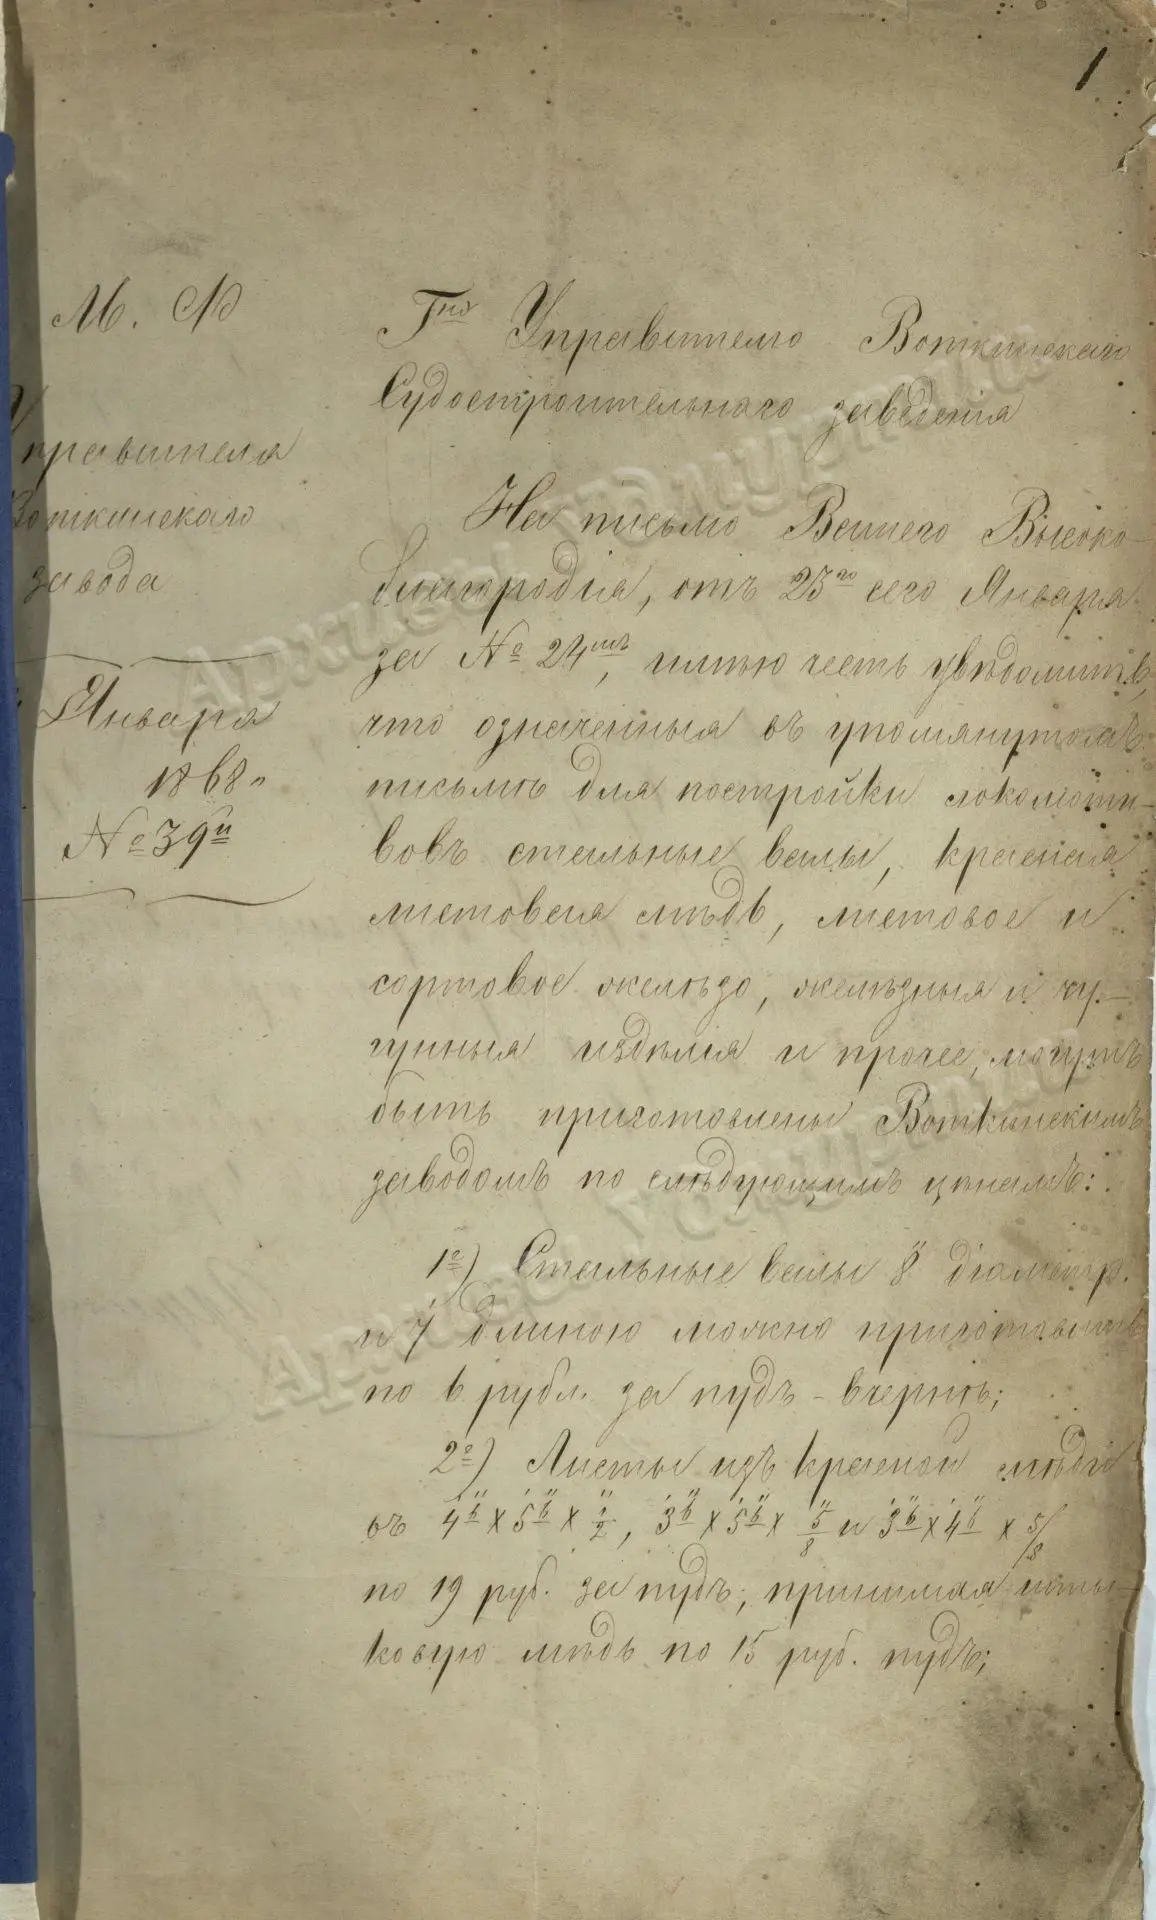 1
М. Ф.
Управителя
Воткинскаго
завода
Января
1868 г.
№ 39й
Гну Управителю Воткинскаго
Судостроительнаго заведенія
На письмо Вашего Высоко-
благородія, отъ 23го сего Января
за № 24мъ, имѣю честь увѣдомить,
что означенныя въ упомянутомъ
письмѣ для постройки локомоти-
вовъ стальные валы, красная
листовая мѣдь, листовое и
сортовое желѣзо, желѣзныя и чу-
гунныя издѣлія и прочее, могутъ
быть приготовлены Воткинскимъ
заводомъ по слѣдующимъ цѣнамъ:
1е) Стальные валы 8" діаметр.
и 7' длиною можно приготовить
по 6 рубл. за пудъ - вчернѣ;
2е) Листы изъ красной мѣди
въ 4' 6" × 5' 6" × 1/2", 3' 6" × 5' 6" × 5/8" и 3' 6" × 4' 6" × 5/8
по 19 руб. за пудъ, принимая шты-
ковую мѣдь по 15 руб. пудъ;
Архивы Удмуртии
Архивы Удмуртии